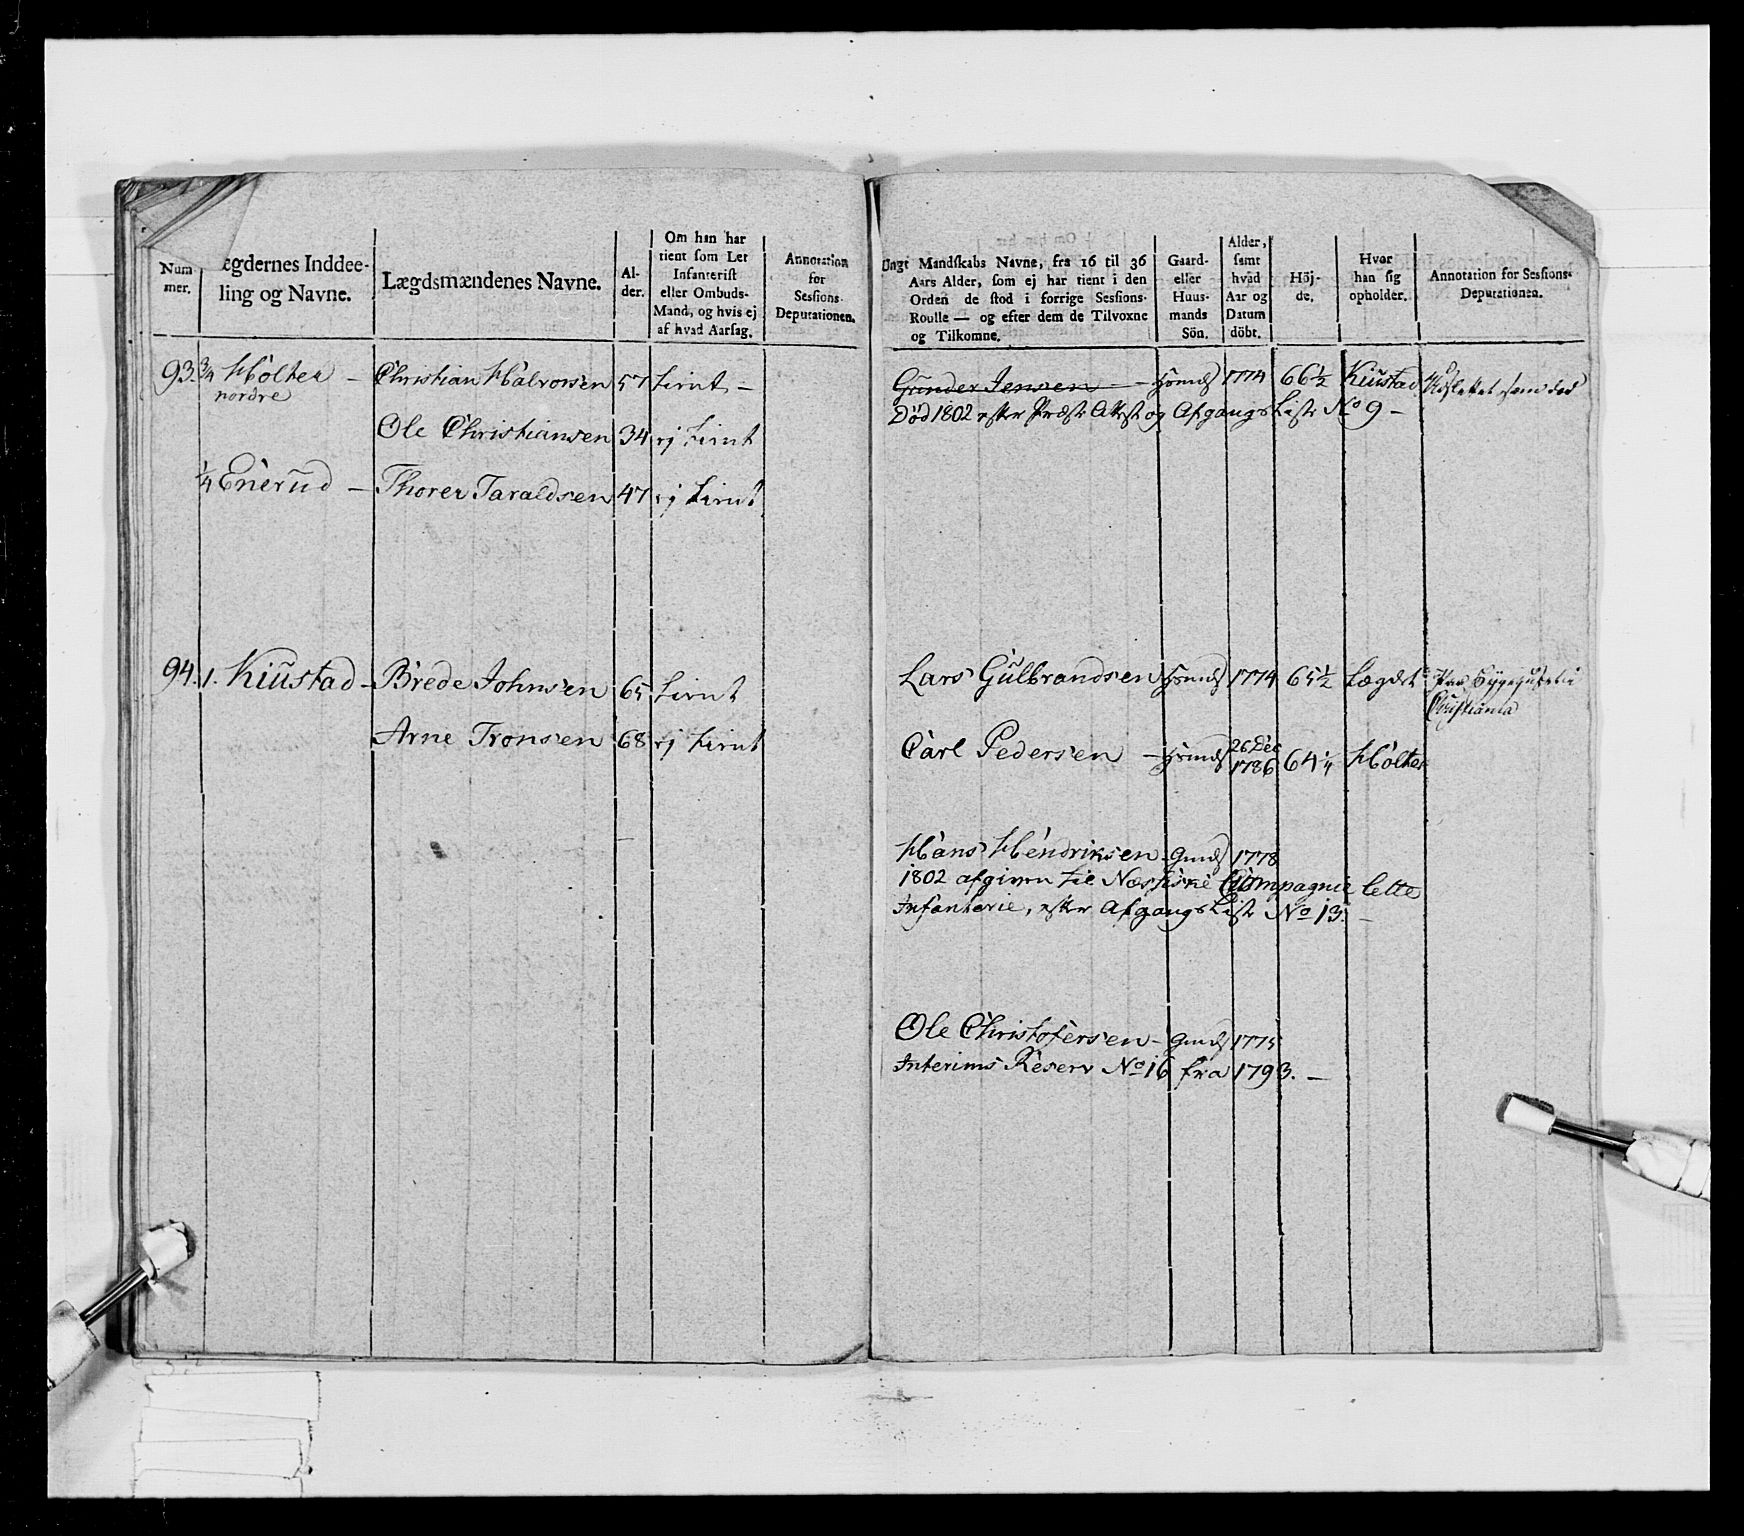 Num-
mer.
ægdernes Inddee-
ling og Navne.
Lægdsmændenes Navne.
Al-
der.
Om han har
tient som Let
Infanterist
eller Ombuds-
Mand, og hvis ej
af hvad Aarsag.
Annotation
for
Sessions-
Deputationen.
93. 3/4 Holter — Christian Halvorsen 57 tient —
nordre
Ole Christiansen 34 ej tient
1/4 Enerud — Thorer Taraldsen 47 ej tient
94. 1. Kiustad — Brede Johnsen 65 tient
Arne Tronsen 68 ej tient
Ungt Mandskabs Navne, fra 16 til 36
Aars Alder, som ej har tient i den
Orden de stod i forrige Sessions-
Roulle — og efter dem de Tilvoxne
og Tilkomne.
Gaard-
eller
Huus-
mands
Sön.
Alder,
samt
hvad
Aar og
Datum
döbt.
Höj-
de.
Hvor
han sig
opholder.
Annotation for Sessions-
Deputationen.
Gunder Jensen — Hsmds 1774 66 1/2 Kiustad Udslettet som död
Död 1802 efter Præste Attest og Afgangs Liste No 9 —
Lars Gulbrandsen Hsmds 1774 65 1/2 Lægdet
Christiania
Carl Pedersen — Hsmds 26 Dec 1786 64 1/4 Holter
Hans Hendriksen — Gmds 1778
1802 afgiven til Compagnie lette
Infanterie, efter Afgangs Liste No 13. —
Ole Christofersen — Gmds 1775
Interims Reserv No 16 fra 1793. —